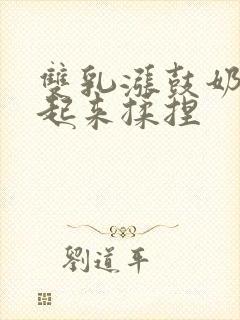 雙乳漲鼓奶
起来揉捏
劉道平